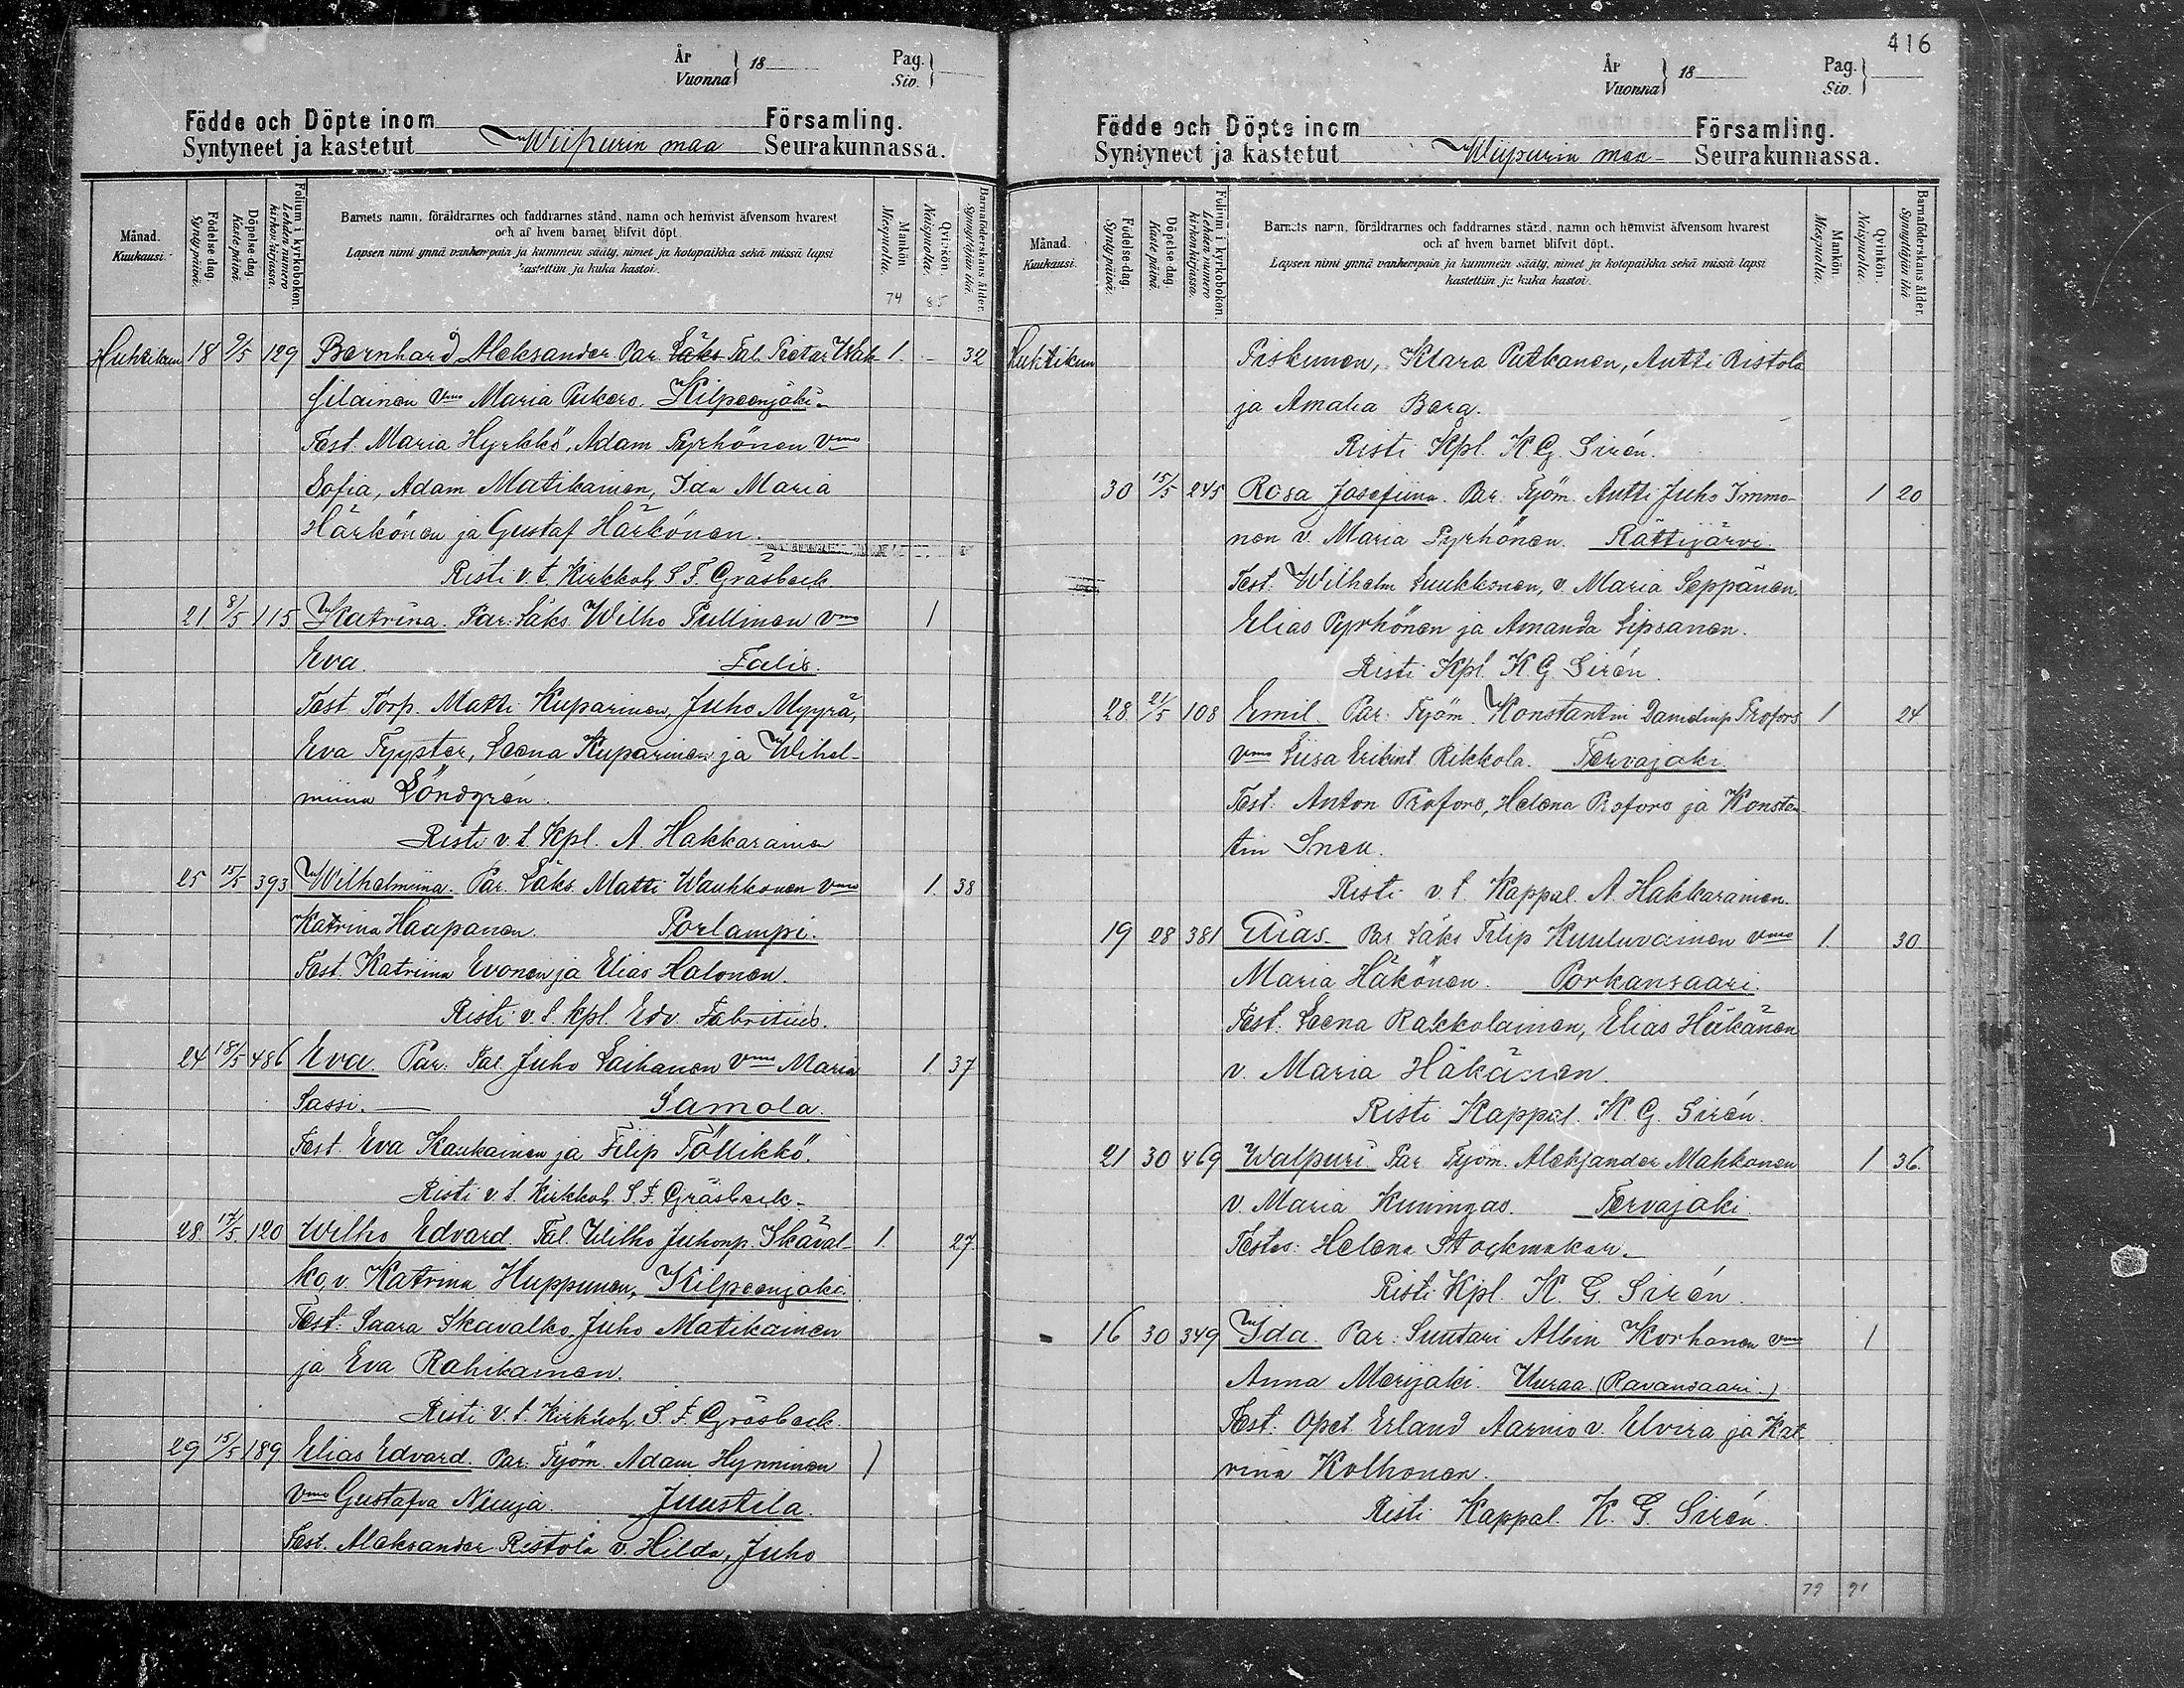 År
Vuonna } 18
Pag.
Siv. }
Födde och Döpte inom Församling.
Syntyneet ja kastetut Wiipurin maa Seurakunnassa.
Månad.
Kuukausi.
Födelse dag.
Syntypäivä.
Döpelse dag
Kaste päivä.
Folium i kyrkoboken.
Lehden numero
kirkon kirjassa.
Barnets namn, föräldrarnes och faddrarnes stånd, namn och hemvist äfvensom hvarest
och af hvem barnet blifvit döpt.
Lapsen nimi ynnä vanhempain ja kummein sääty, nimet ja kotopaikka sekä missä lapsi
kastettiin ja kuka kastoi.
Mankön
Miespuolia.
Qvinkön.
Naispuolia.
Barnaföderskans ålder.
Synnyttäjän ikä.
74 85
Huhtikuu 18 9/5 129 Bernhard Aleksander Par. Läks Tal. Pietar Wah 1. - 32
silainen vmo Maria Pukero. Kilpeenjoki.
Test. Maria Hyrkkö, Adam Pyrhönen vmo
Sofia, Adam Matikainen, Ida Maria
Härkönen ja Gustaf Härkönen.
Risti v.t. Kirkkoh. S. F. Gräsbeck
21 8/5 115 Katrina. Par: Läks. Wilho Pullinen vmo 1
Eva. Talis.
Test. Torp. Matti Kuparinen, Juho Myyrä,
Eva Tyyster, Leena Kuparinen ja Wihel-
miina Löndgrén.
Risti v.t. Kpl. A. Hakkarainen
25 15/5 393 Wilhelmiina. Par. Läks. Matti Wauhkonen vmo 1. 38
Katrina Haapanen. Porlampi.
Test. Katriina Evonen ja Elias Halonen.
Risti v.t. kpl. Edv. Fabritius.
24 18/5 486 Eva. Par: Tal. Juho Laihanen vmo Maria 1 37
Sassi. Samola.
Test. Eva Kaukainen ja Filip Töllikkö.
Risti v.t. Kirkkoh. S. F. Gräsbeck.
28. 17/5. 120 Wilho Edvard Tal. Wilho Juhonp. Skäval- 1. 27
ko, v. Katrina Huppunen, Kilpeenjoki.
Test: Saara Skavalko, Juho Matikainen
ja Eva Rahikainen.
Risti v.t. Kirkkoh. S. F. Gräsbeck.
29 15/5 189 Elias Edvard. Par: Työm. Adam Hynninen 1
vmo Gustafva Niuuja. Juustila.
Test. Aleksander Ristola v. Hilda, Juho
416
År
Vuonna } 18
Pag.
Siv. }
Födde och Döpte inom Församling.
Syntyneet ja kastetut Wiipurin maa Seurakunnassa.
Månad.
Kuukausi.
Födelse dag.
Syntypäivä.
Döpelse dag.
Kaste päivä.
Folium i kyrkoboken.
Lehden numero
kirkon kirjassa.
Barnets namn, föräldrarnes och faddrarnes stånd, namn och hemvist äfvensom hvarest
och af hvem barnet blifvit döpt.
Lapsen nimi ynnä vanhempain ja kummein sääty, nimet ja kotopaikka sekä missä lapsi
kastettiin ja kuka kastoi.
Mankön
Miespuolia.
Qvinkön.
Naispuolia.
Barnaföderskans ålder.
Synnyttäjän ikä.
Huhtikuu Piskunen, Klara Putkonen, Antti Ristola
ja Amalia Berg.
Risti Kpl. K. G. Sirén.
30 15/5 245 Rosa Josefiina. Par: Työm. Antti Juho Immo- 1 20
nen v. Maria Pyrhönen. Rättijärvi.
Test: Wilhelm Luukkonen, v. Maria Seppänen.
Elias Pyrhönen ja Amanda Lipsanen.
Risti Kpl. K. G. Sirén.
28. 21/5 108 Emil. Par: Työm. Konstantin Danielinp Profors 1 24
vmo Liisa Erikint. Rikkola. Tervajoki.
Test: Anton Profors, Helena Profors ja Konstan-
tin Sneu.
Risti v.t. Kappal. A. Hakkarainen.
19 28 381 Elias. Par Läks Filip Kuuluvainen vmo 1. 30.
Maria Häkönen. Porkansaari.
Test: Leena Rakkolainen, Elias Häkänen
v. Maria Häkänen.
Risti Kappal. K. G. Sirén.
21 30 469 Walpuri Par Työm. Aleksander Mahkonen 1 36.
v. Maria Kuningas. Tervajoki.
Testes: Helena Stockmakar.
Risti Kpl. K. G. Sirén.
16 30 349 Ida. Par: Suutari Albin Korhonen vmo 1
Anna Merijoki. Uuraa (Ravansaari.)
Test: Opet. Erland Aarnio v. Elvira ja Kat-
rina Kolhonen.
Risti Kappal. K. G. Sirén.
79 91